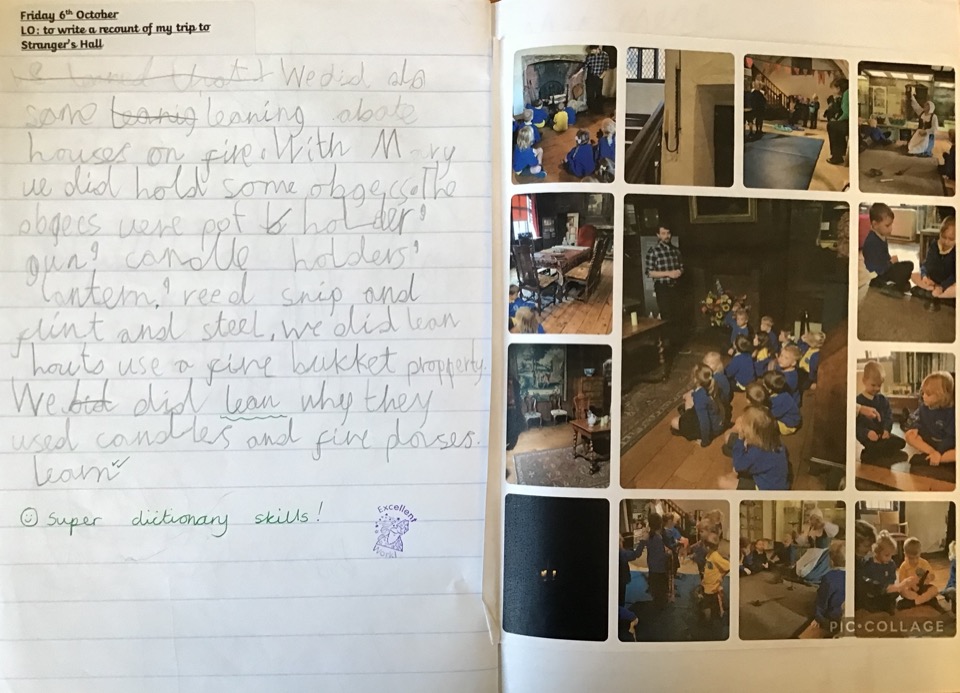 Friday 6th October
LO: to write a recount of my trip to
Stranger's Hall
We did als
some leanig leaning abate
houses on fire. With Mary
we did hold some obgecs. The
obgecs were pot holder,
gun, candle holders,
lantern, reed snip and
flint and steel, we did lean
houts use a fire bukket propperty.
We did did lean why they
used candles and fire plases.
learn ✓
☺ Super dictionary skills!
Excellent
World
PIC•COLLAGE